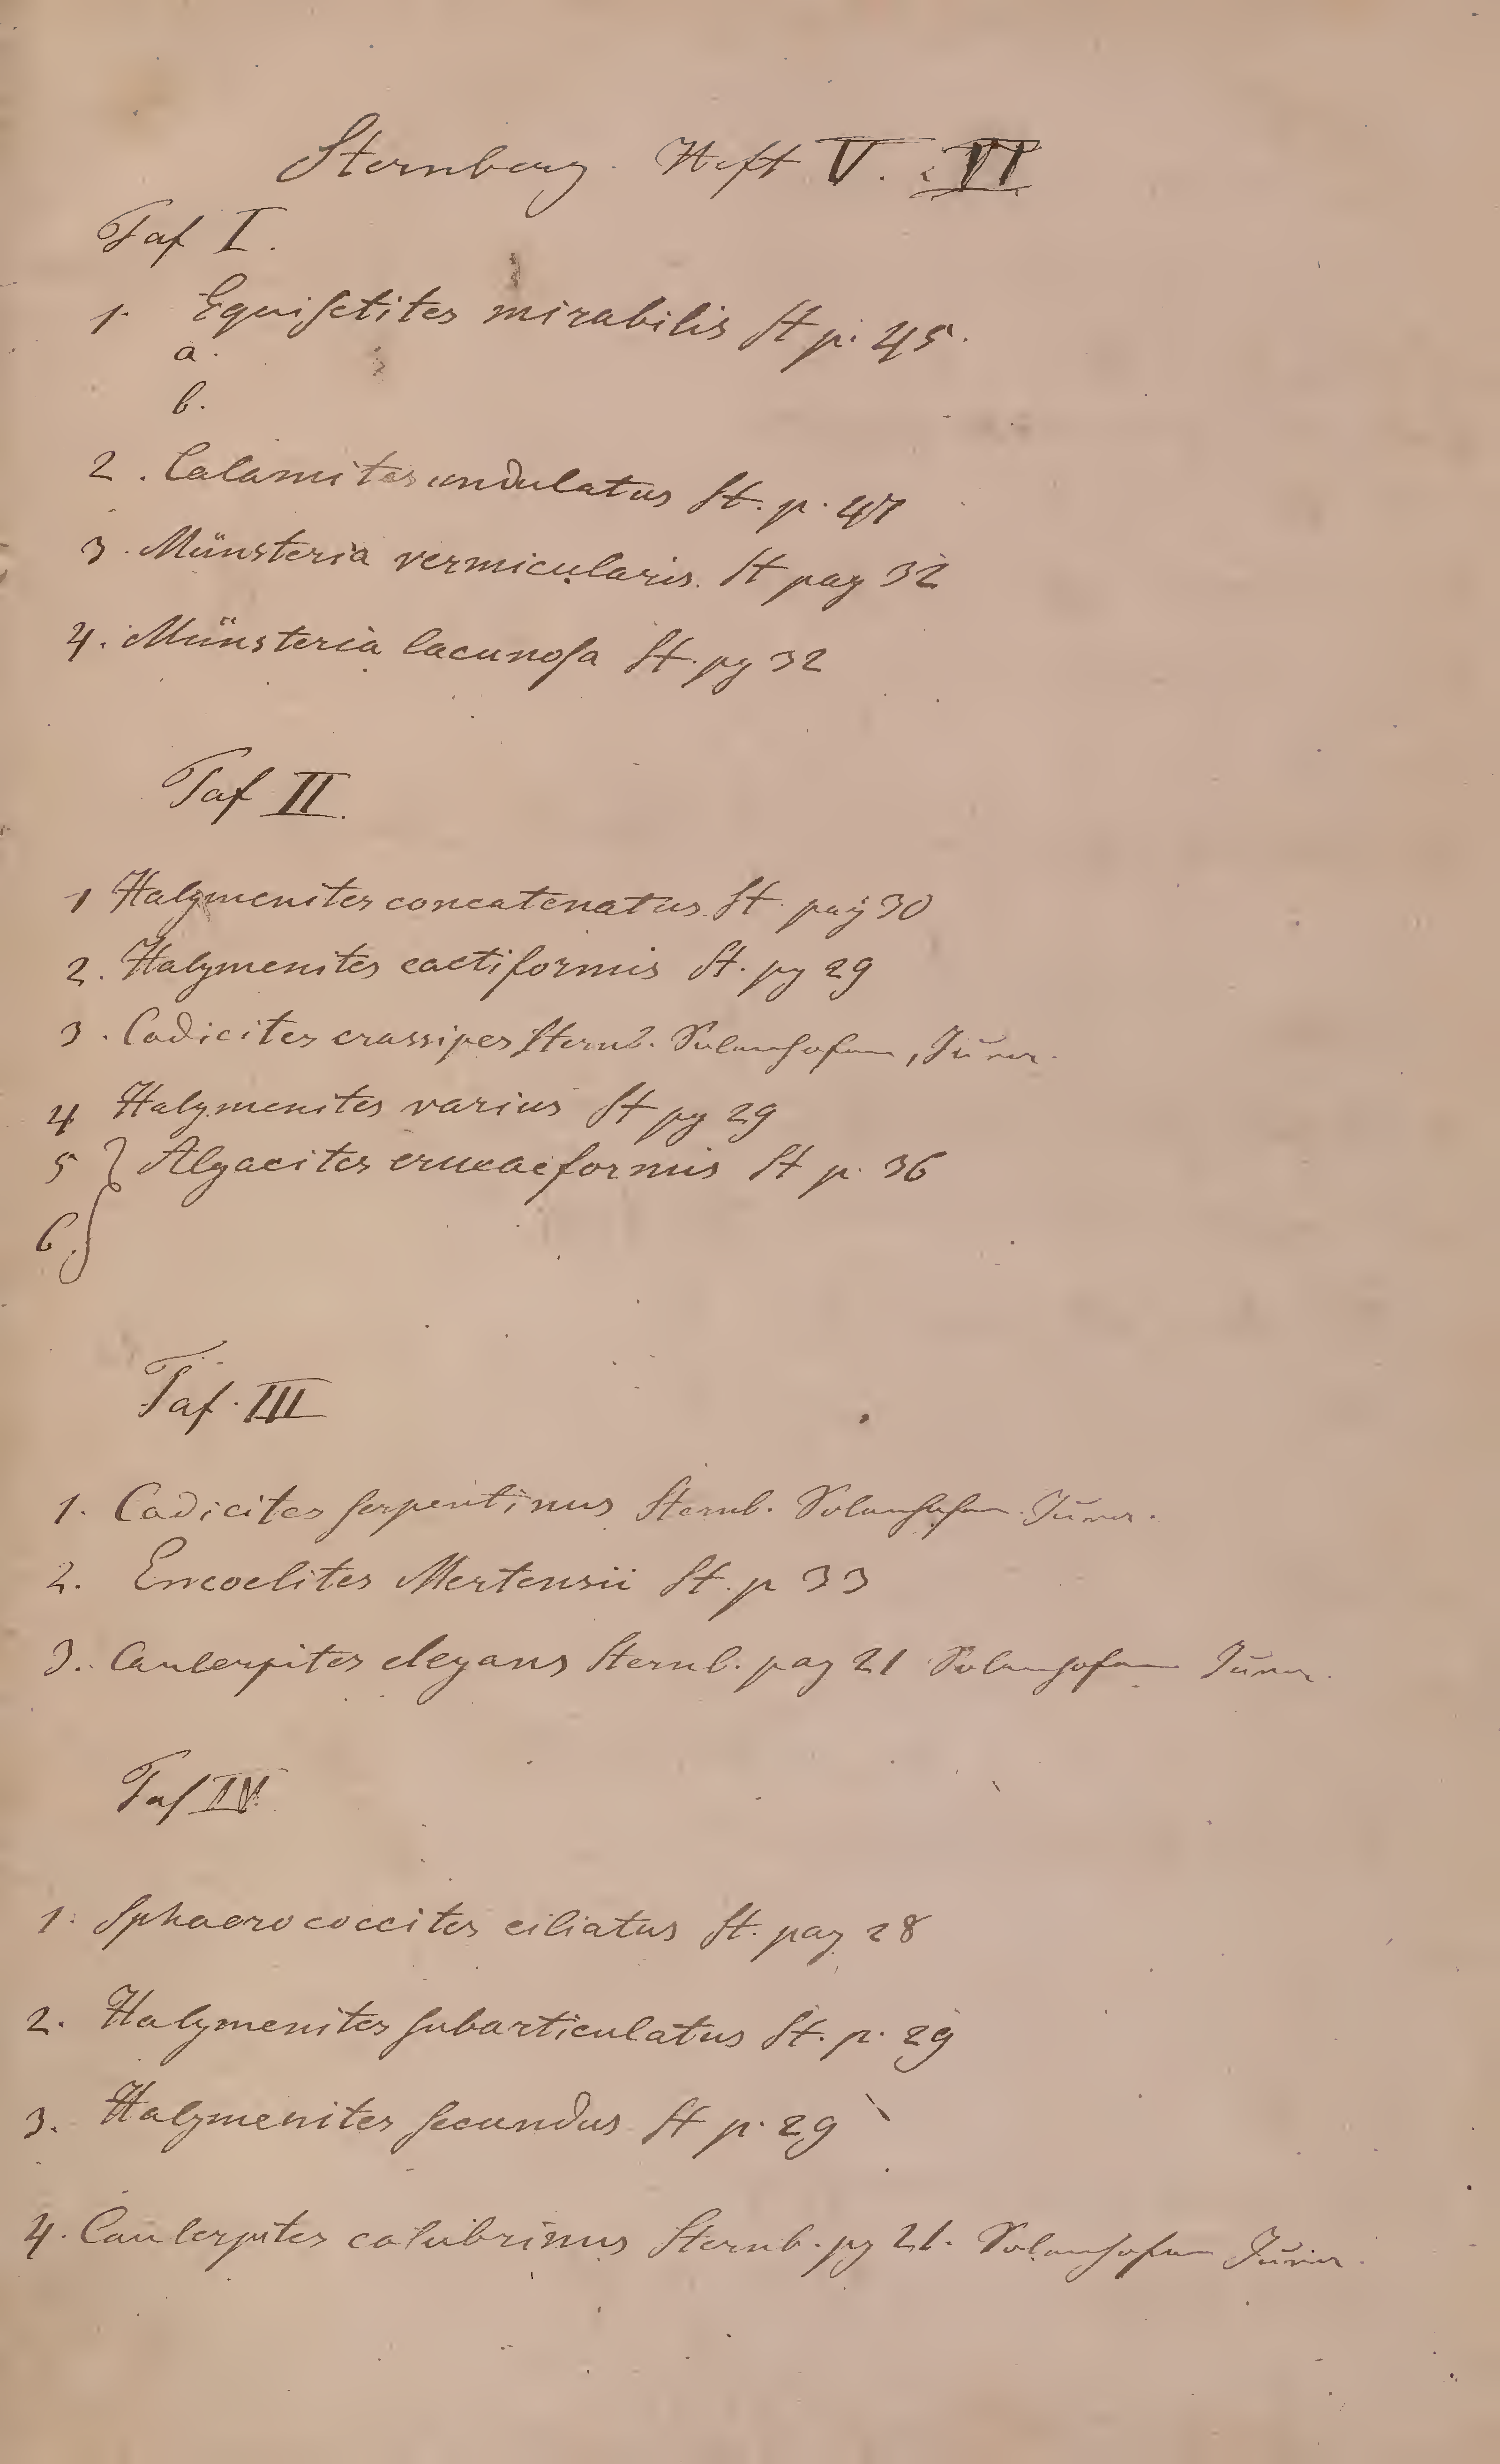 Sternberg. Heft V. VI
Taf I.
1. Equisetites mirabilis St p. 45.
a.
b.
2. Calamites undulatus St. p. 47
3. Münsteria vermicularis. St pag 32
4. Münsteria lacunosa St. pg 32
Taf II.
1 Halymenites concatenatus St. pag 30
2. Halymenites cactiformis St. pg 29
3. Codicites crassipes Sternb. Solenhofen, Jura.
4 Halymenites varius St pg 29
5 } Algacites erucaeformis St p. 36
6. }
Taf. III
1. Codicites serpentinus Sternb. Solenhofen. Jura.
2. Encoelites Mertensii St. p 33
3. Caulerpites elegans Sternb. pag 21 Solenhofen Jura.
Taf IV
1. Sphaerococcites ciliatus St. pag 28
2. Halymenites subarticulatus St. p. 29
3. Halymenites secundus St p. 29
4. Caulerpites colubrinus Sternb. pg 21. Solenhofen Jura.